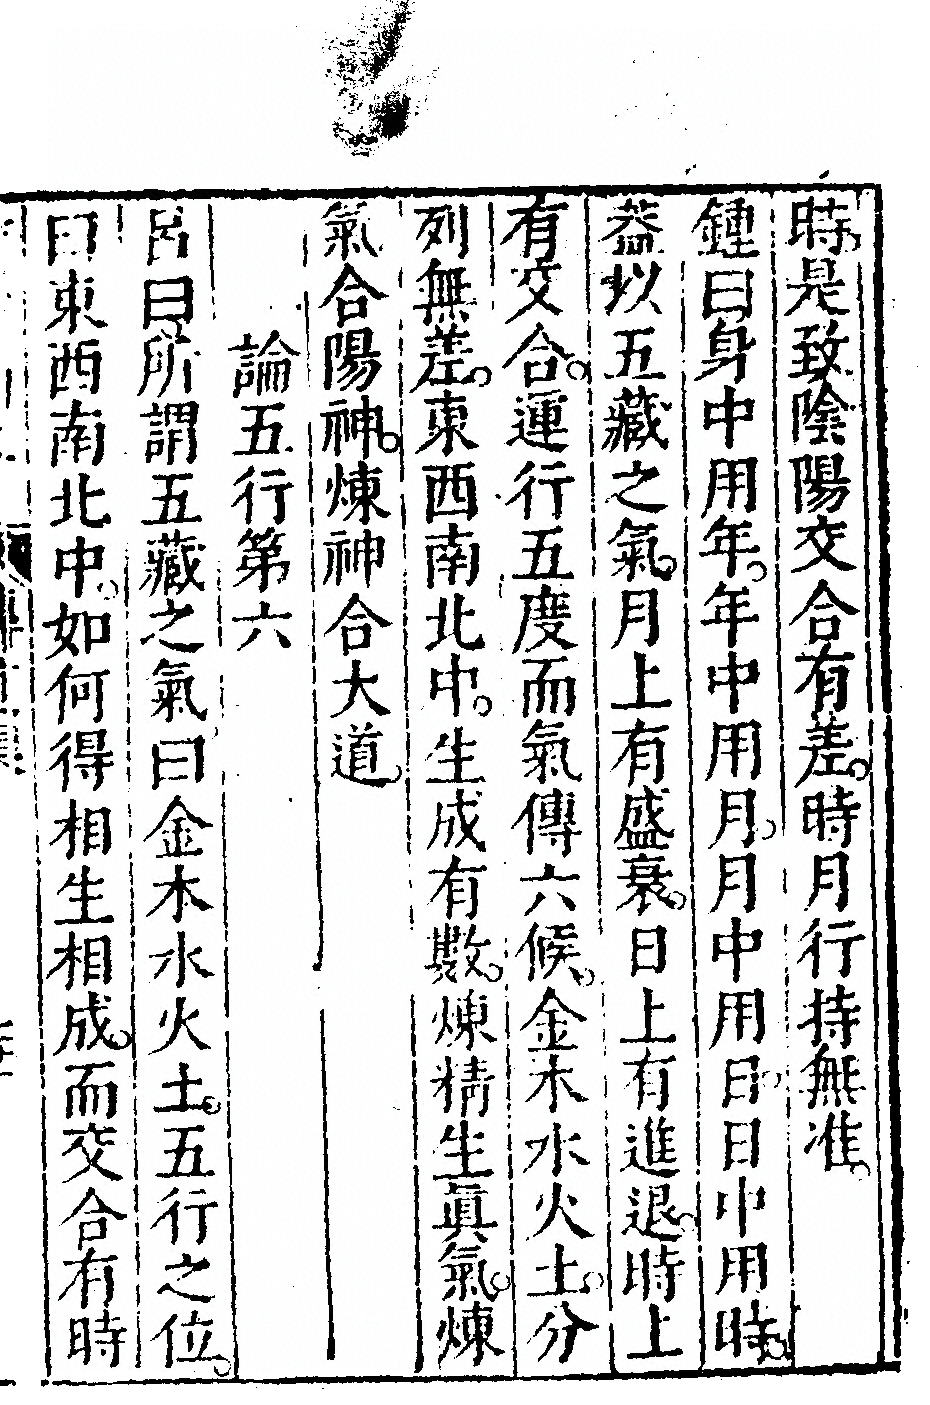 時。是致陰陽交合有差。時月行持無准。
鍾曰身中用年。年中用月。月中用日。日中用時。
葢以五藏之氣。月上有盛衰。日上有進退。時上
有交合。運行五度而氣傳六候。金木水火土。分
列無差。東西南北中。生成有數。煉精生眞氣。煉
氣合陽神。煉神合大道。
論五行第六
呂曰所謂五藏之氣曰金木水火土。五行之位。
曰東西南北中。如何得相生相成。而交合有時